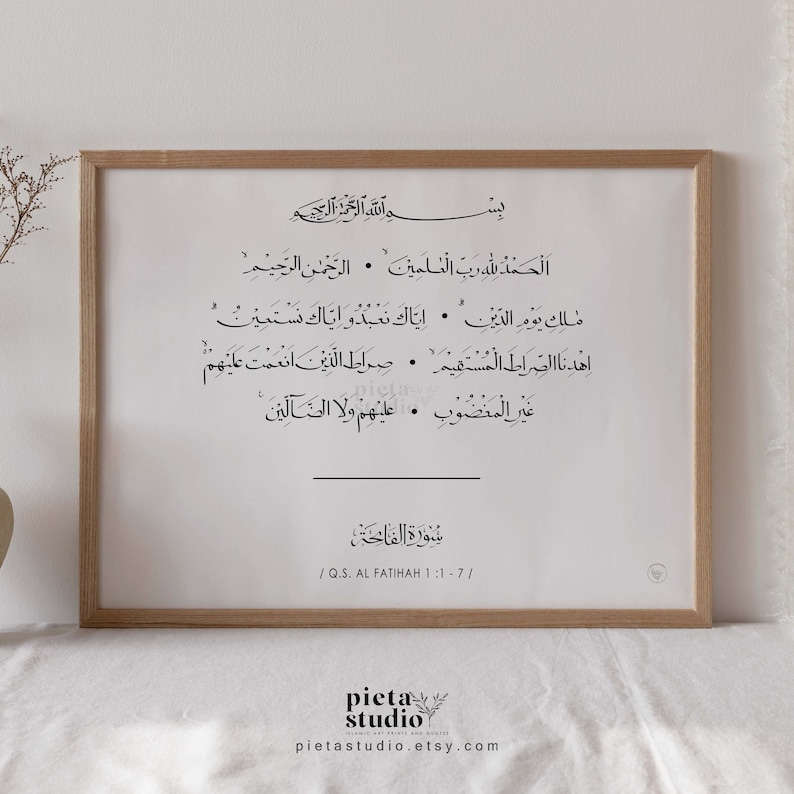 بِسْمِ اللَّهِ الرَّحْمَٰنِ الرَّحِيمِ
اَلْحَمْدُ لِلّٰهِ رَبِّ الْعٰلَمِيْنَۙ • الرَّحْمٰنِ الرَّحِيْمِۙ
مٰلِكِ يَوْمِ الدِّيْنِۗ • اِيَّاكَ نَعْبُدُ وَاِيَّاكَ نَسْتَعِيْنُۗ
اِهْدِنَا الصِّرَاطَ الْمُسْتَقِيْمَۙ • صِرَاطَ الَّذِيْنَ اَنْعَمْتَ عَلَيْهِمْۙ
غَيْرِ الْمَغْضُوْبِ • عَلَيْهِمْ وَلَا الضَّاۤلِّيْنَ
pieta
studio
سُورَة الفَاتِحَة
/ Q.S. AL FATIHAH 1 :1 - 7 /
pieta
studio
ISLAMIC ART PRINTS AND QUOTES
pietastudio.etsy.com